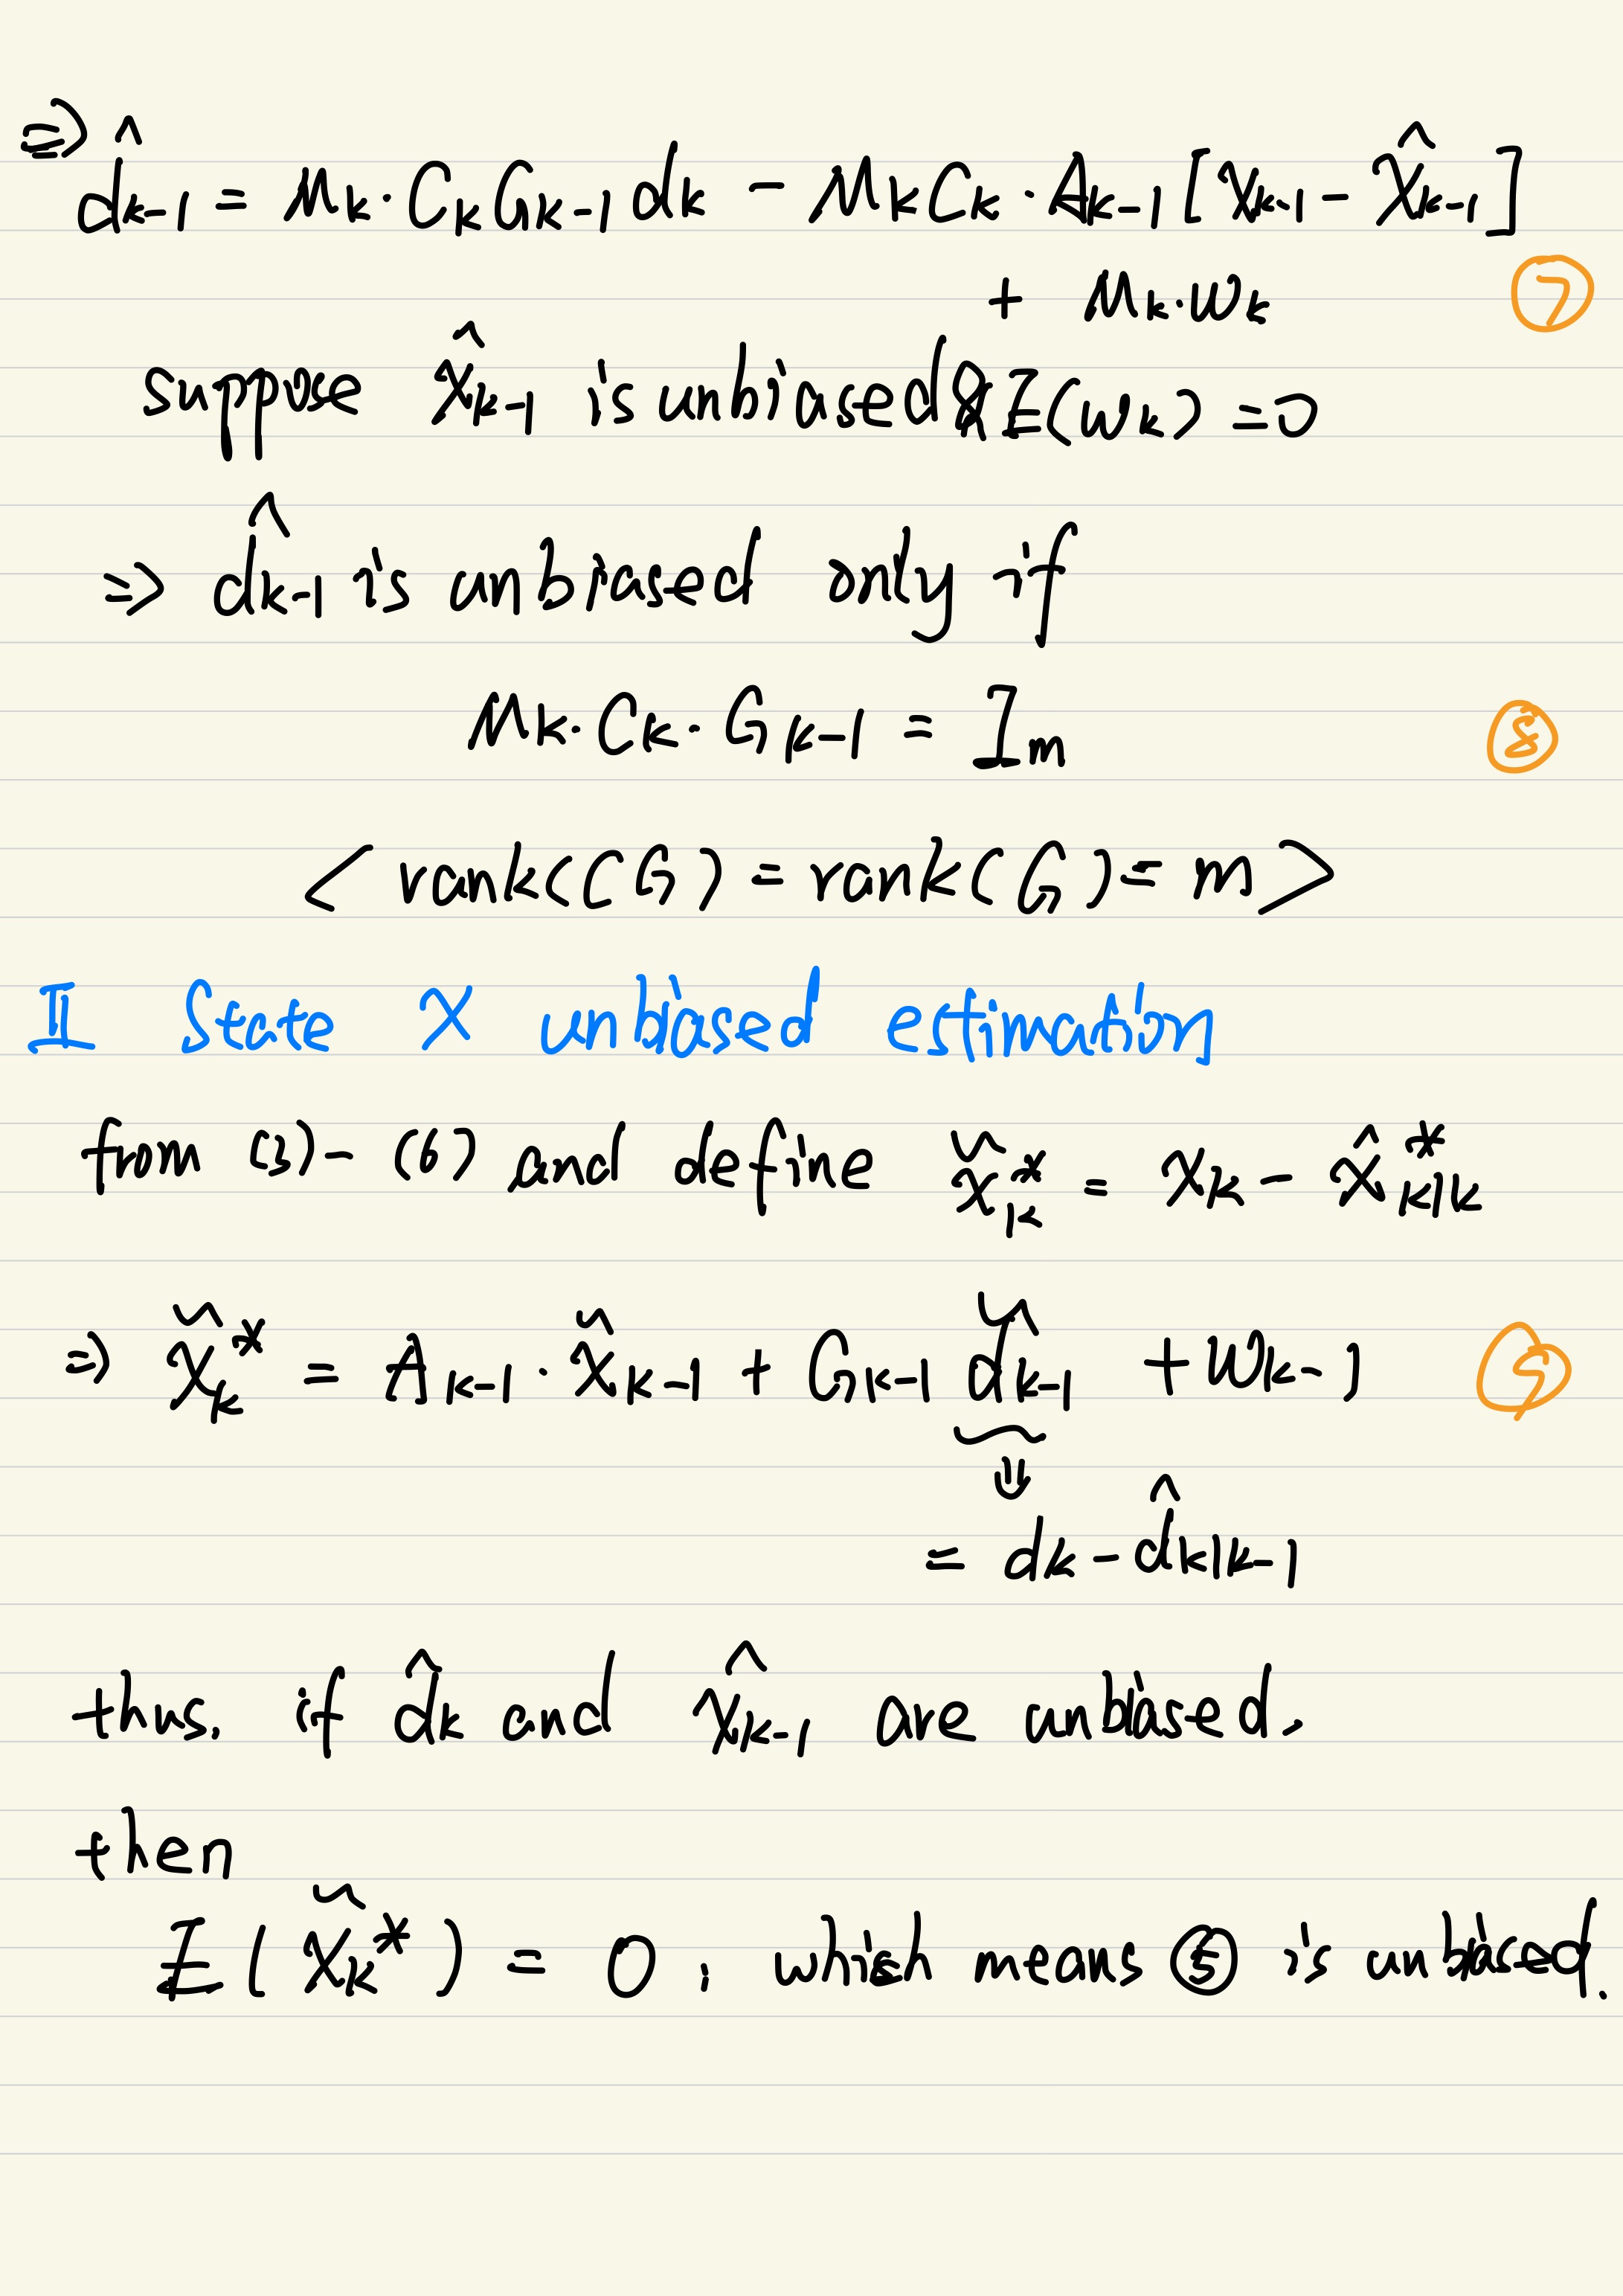 ⇒ d̂k-1 = Mk·CkGk-1dk − MkCk·Ak-1[Xk-1 − X̂k-1]
+ Mk·wk ⑦
suppose x̂k-1 is unbiased & E(wk) = 0
⇒ d̂k-1 is unbiased only if
Mk·Ck·Gk-1 = Im ⑧
< rank(CG) = rank(G) = m >
II State X unbiased estimation
from (3)-(6) and define x̃*k = xk − x̂*k|k
⇒ x̃*k = Ak-1·x̃k-1 + Gk-1 d̃k-1 + wk-1 ⑨
⇓
= dk − d̂k|k-1
thus. if d̂k and x̂k-1 are unbiased,
then
E(x̃k*) = 0 , which means ⑤ is unbiased.